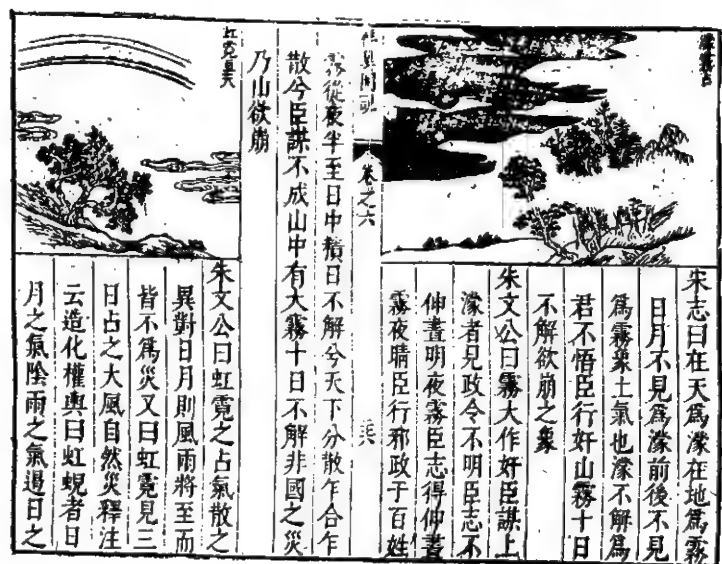 濛霧占
宋志曰在天爲濛在地爲霧
日月不見爲濛前後不見
爲霧象土氣也濛不解爲
君不悟臣行奸山霧十日
不解欲崩之象
朱文公曰霧大作奸臣謀上
濛者見政令不明臣志不
伸晝明夜霧臣志得伸晝
霧夜晴臣行邪政于百姓
卷之六
霧從夜半至日中積日不解兮天下分散乍合乍
散兮臣謀不成山中有大霧十日不解非國之災
乃山欲崩
虹霓
朱文公曰虹霓之占氣散之
異對日月則風雨將至而
皆不爲災又曰虹霓見三
日占之大風自然災釋注
云造化權輿曰虹蜺者日
月之氣陰雨之氣過日之